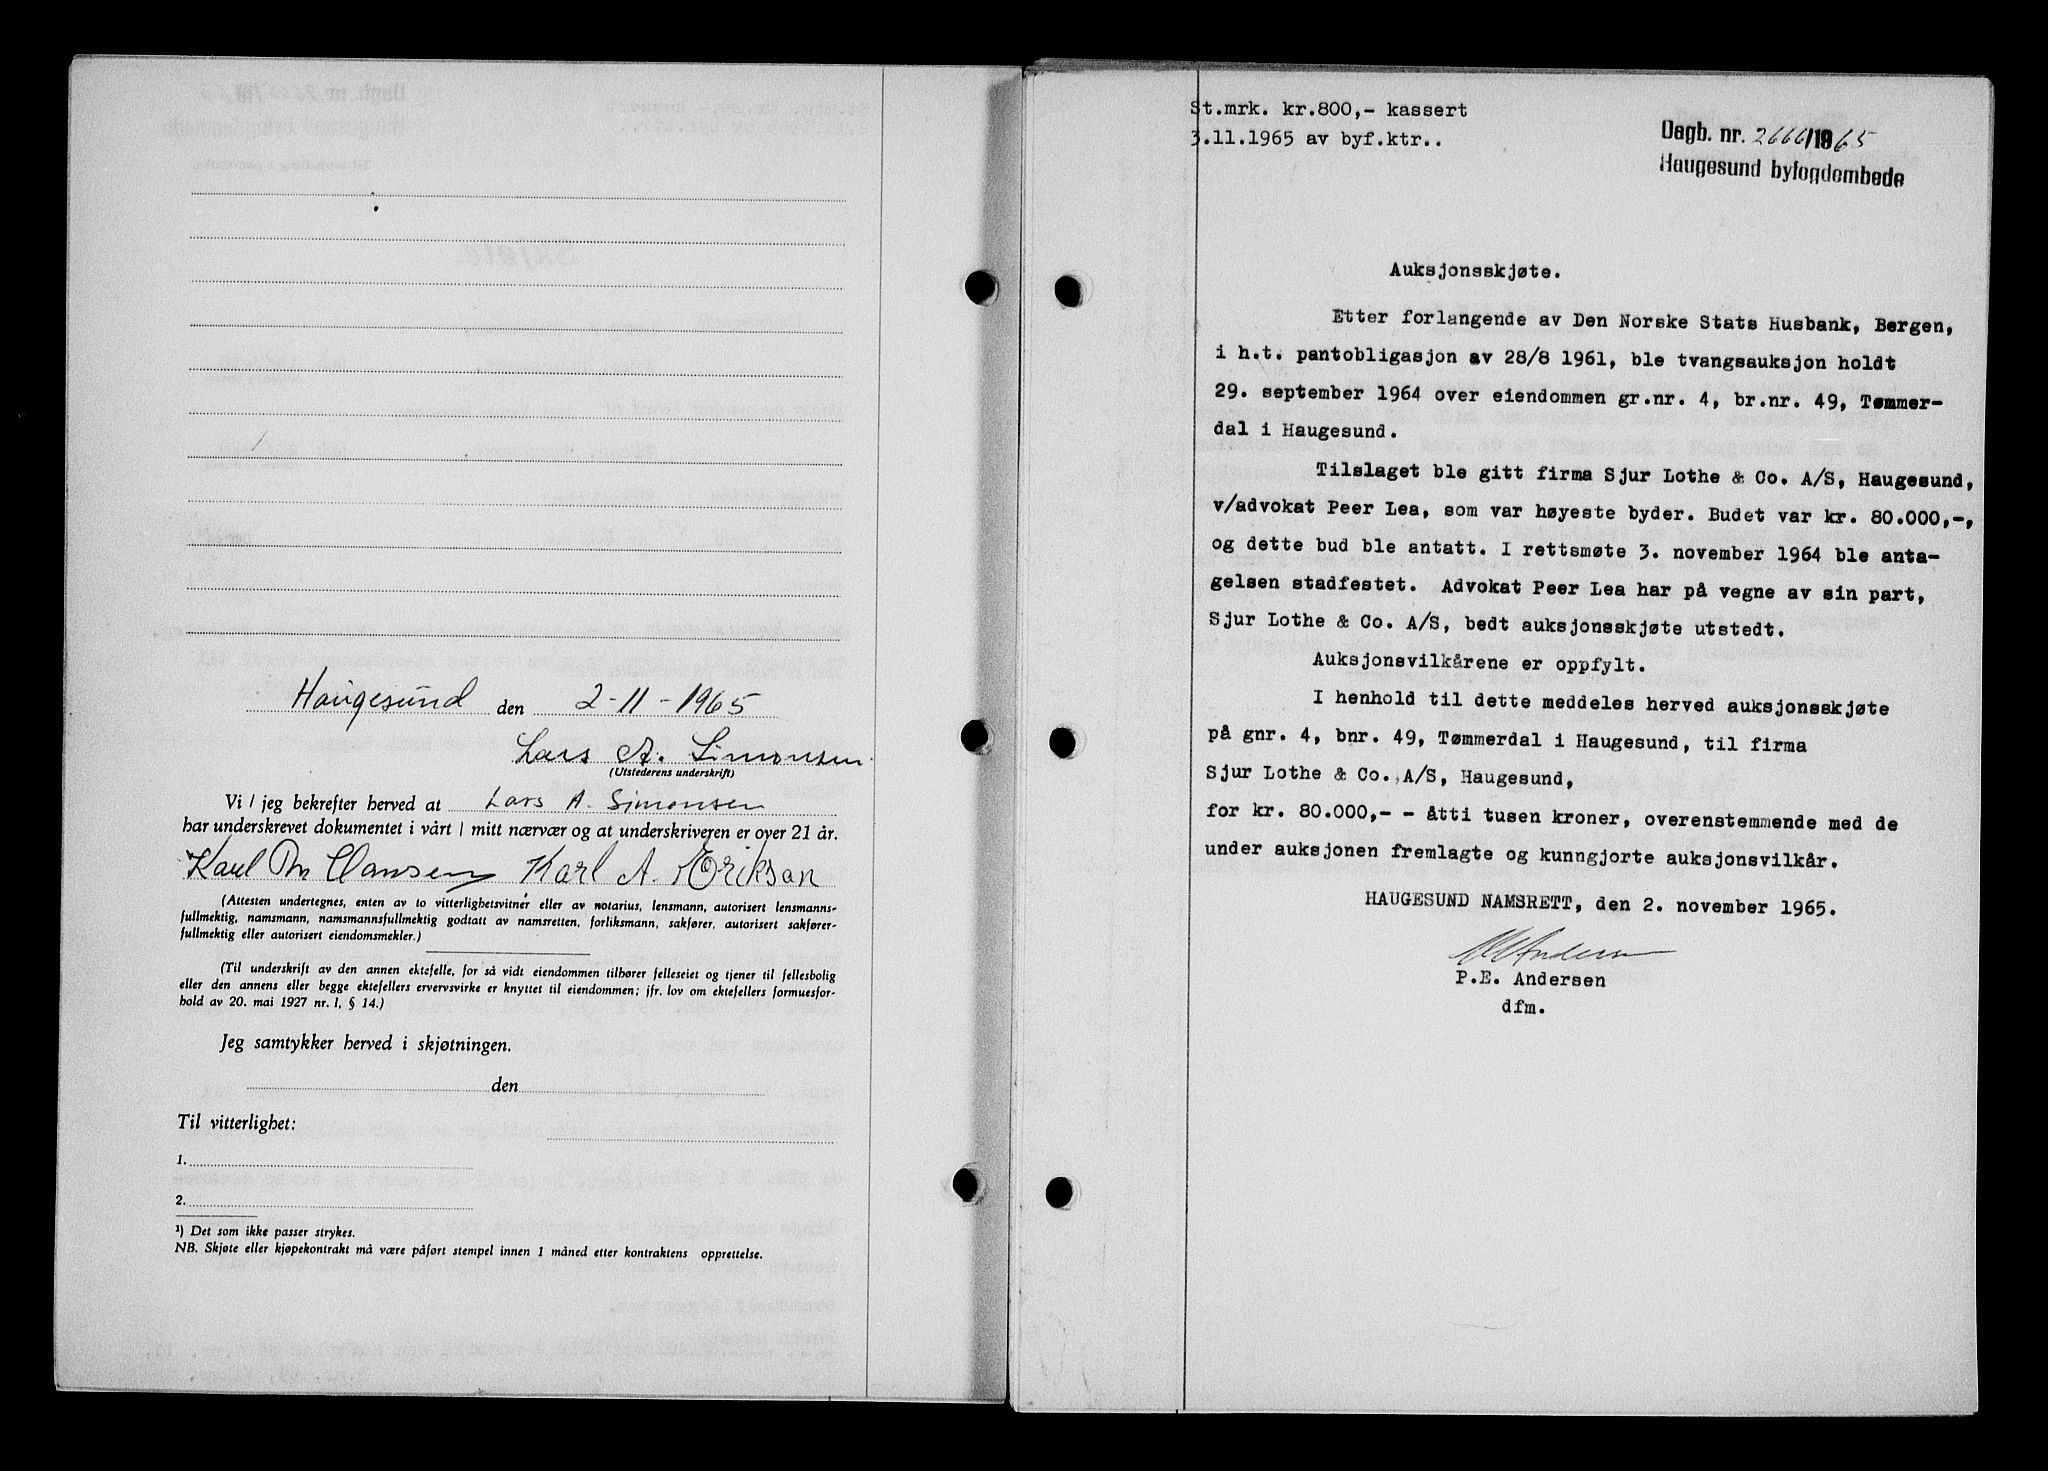 Haugesund den 2-11-1965
Lars A. Simonsen
(Utstederens underskrift)
Vi / jeg bekrefter herved at Lars A. Simonsen
har underskrevet dokumentet i vårt / mitt nærvær og at underskriveren er over 21 år.
Karl M Hansen Karl A. Erikson
(Attesten undertegnes, enten av to vitterlighetsvitner eller av notarius, lensmann, autorisert lensmanns-
fullmektig, namsmann, namsmannsfullmektig godtatt av namsretten, forliksmann, sakfører, autorisert sakfører-
fullmektig eller autorisert eiendomsmekler.)
(Til underskrift av den annen ektefelle, for så vidt eiendommen tilhører felleseiet og tjener til fellesbolig
eller den annens eller begge ektefellers ervervsvirke er knyttet til eiendommen; jfr. lov om ektefellers formuesfor-
hold av 20. mai 1927 nr. 1, § 14.)
Jeg samtykker herved i skjøtningen.
den
Til vitterlighet:
1.
2.
¹) Det som ikke passer strykes.
NB. Skjøte eller kjøpekontrakt må være påført stempel innen 1 måned etter kontraktens opprettelse.
St.mrk. kr.800,- kassert
3.11.1965 av byf.ktr..
Dagb. nr. 2666/1965
Haugesund byfogdembede
Auksjonsskjøte.
Etter forlangende av Den Norske Stats Husbank, Bergen,
i h.t. pantobligasjon av 28/8 1961, ble tvangsauksjon holdt
29. september 1964 over eiendommen gr.nr. 4, br.nr. 49, Tømmer-
dal i Haugesund.
Tilslaget ble gitt firma Sjur Lothe & Co. A/S, Haugesund,
v/advokat Peer Lea, som var høyeste byder. Budet var kr. 80.000,-,
og dette bud ble antatt. I rettsmøte 3. november 1964 ble anta-
gelsen stadfestet. Advokat Peer Lea har på vegne av sin part,
Sjur Lothe & Co. A/S, bedt auksjonsskjøte utstedt.
Auksjonsvilkårene er oppfylt.
I henhold til dette meddeles herved auksjonsskjøte
på gnr. 4, bnr. 49, Tømmerdal i Haugesund, til firma
Sjur Lothe & Co. A/S, Haugesund,
for kr. 80.000,- - åtti tusen kroner, overenstemmende med de
under auksjonen fremlagte og kunngjorte auksjonsvilkår.
HAUGESUND NAMSRETT, den 2. november 1965.
P.E. Andersen
dfm.